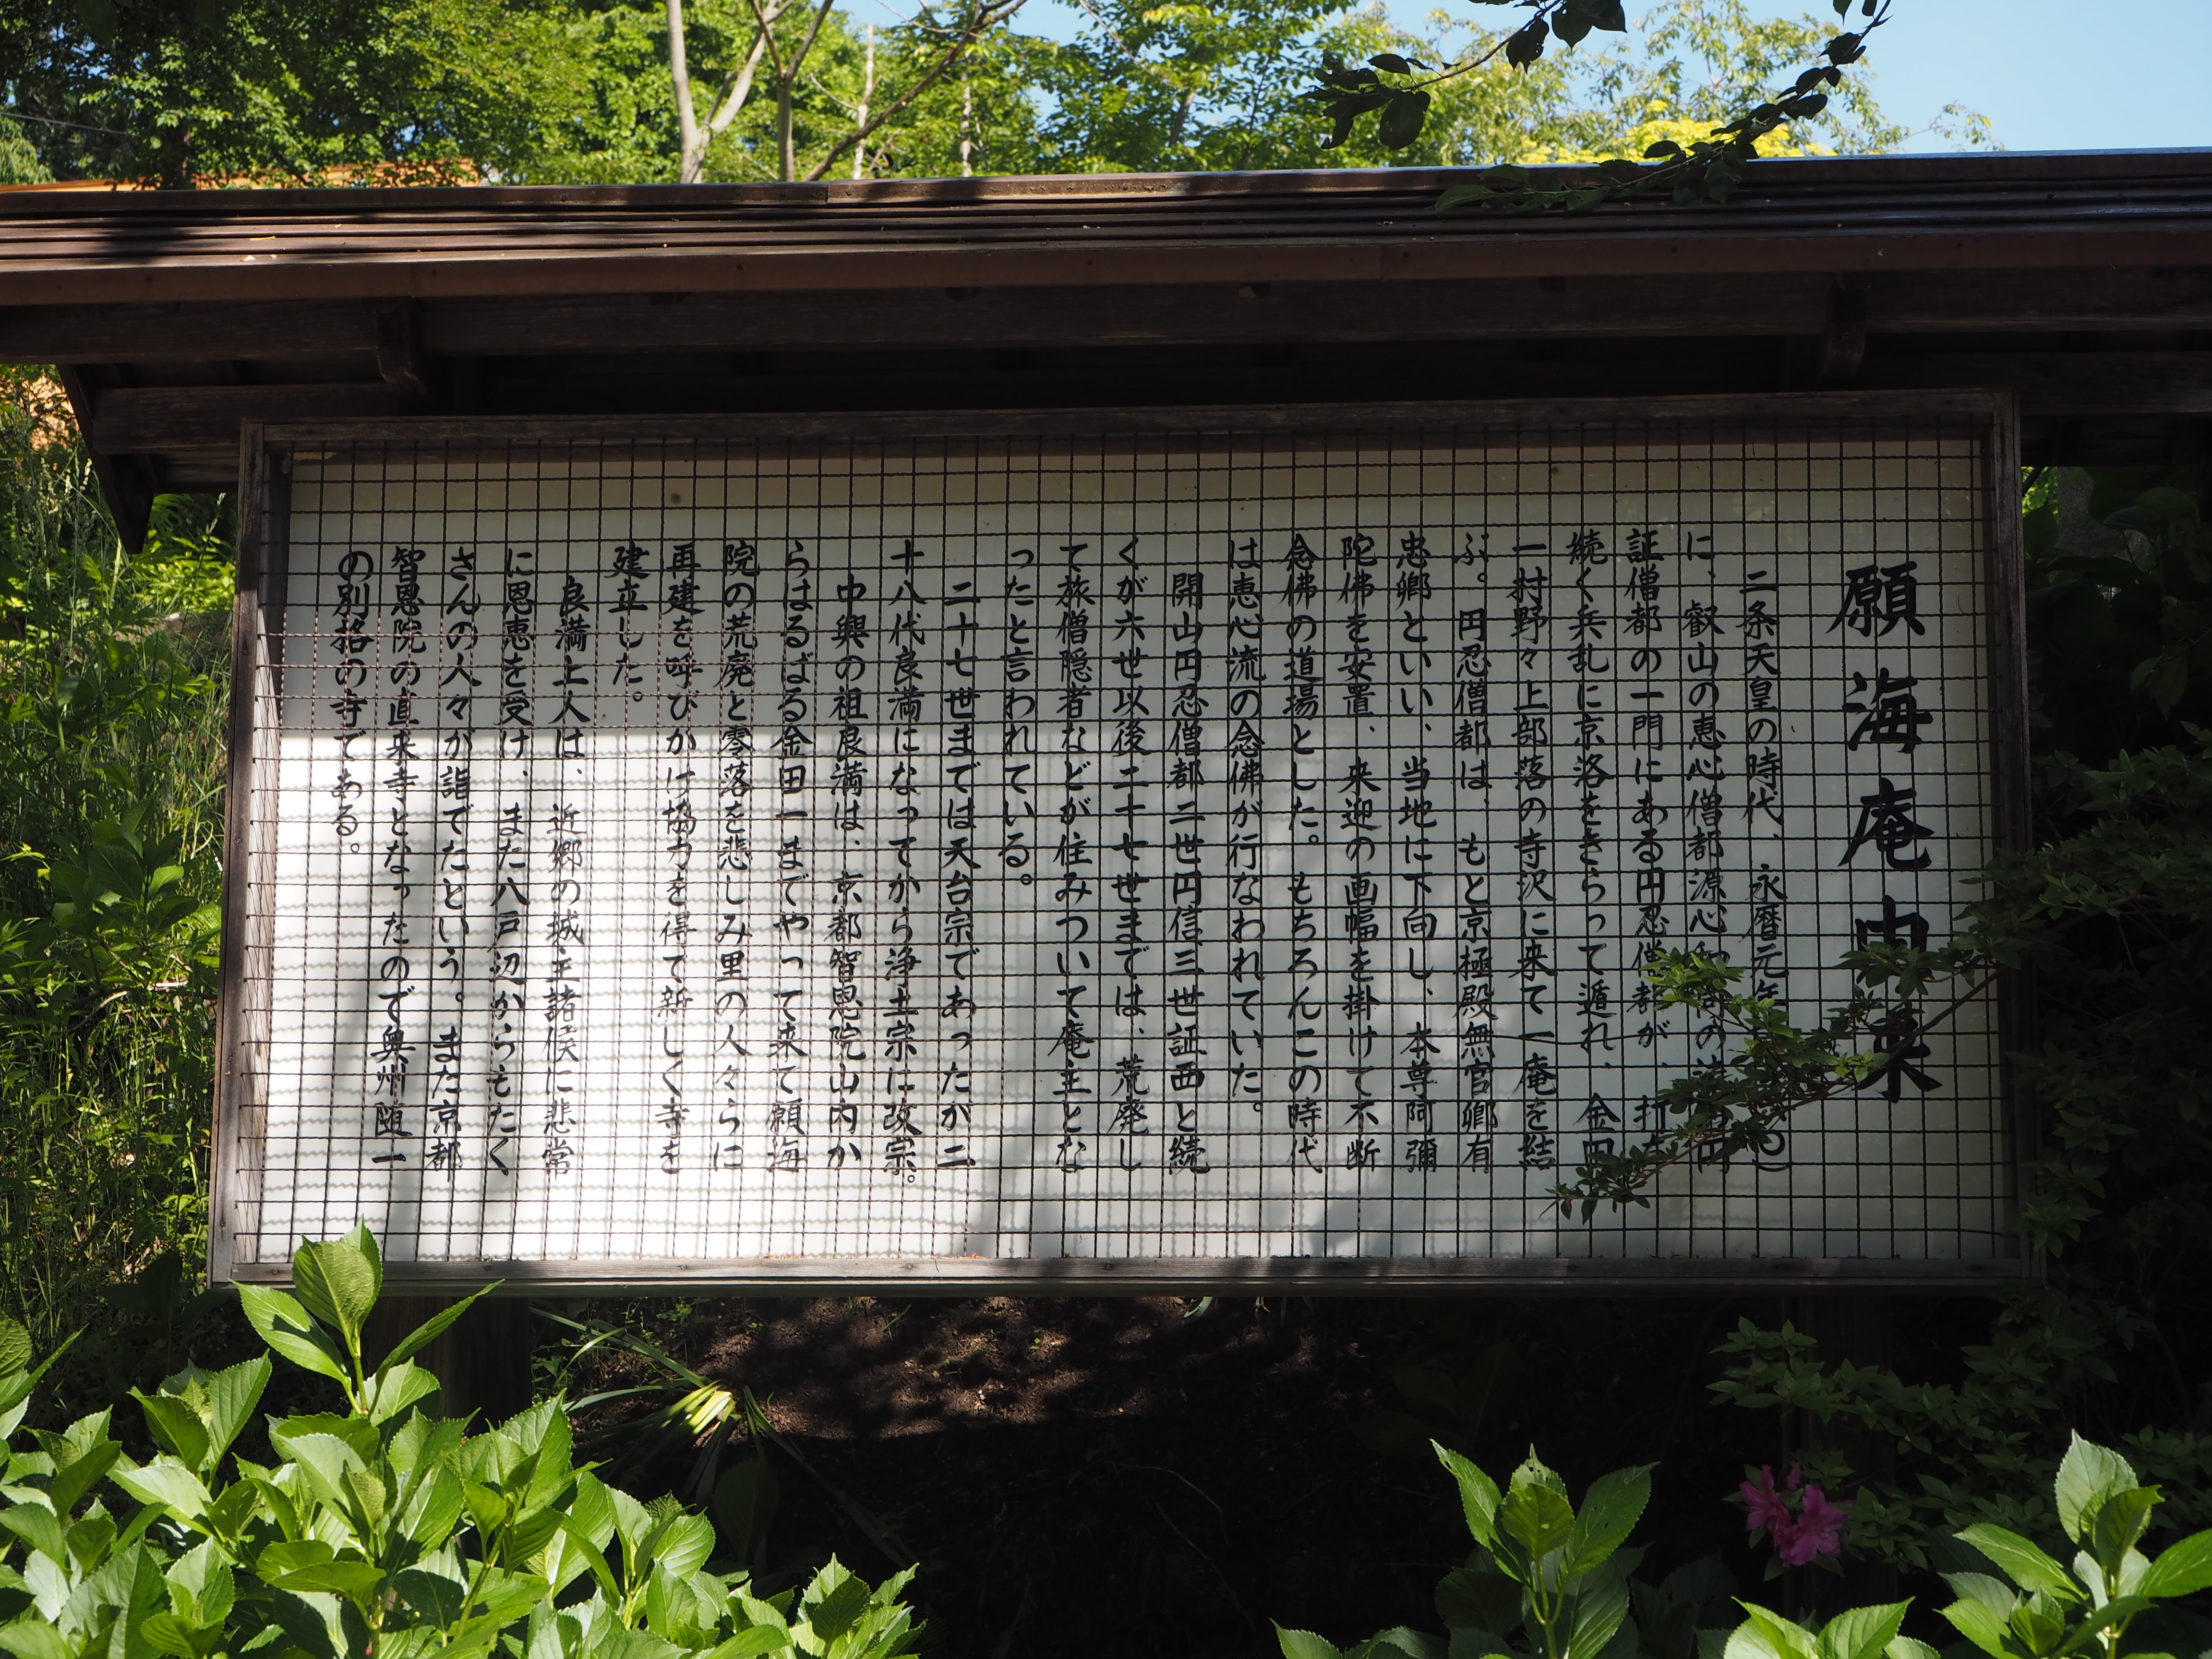 願海庵由来
二条天皇の時代、永暦元年
に、叡山の恵心僧都源心
証僧都の一門にある円忍僧都が、打
続く兵乱に京洛をきらって遁れ、金田
一村野々上部落の寺沢に来て一庵を結
ぶ。円忍僧都は、もと京極殿無官卿有
忠卿といい、当地に下向し、本尊阿彌
陀佛を安置、来迎の画幅を掛けて不断
念佛の道場とした。もちろんこの時代
は恵心流の念佛が行なわれていた。
開山円忍僧都二世円信三世証西と続
くが六世以後二十七世までは、荒廃し
て旅僧隠者などが住みついて庵主とな
ったと言われている。
二十七世までは天台宗であったが二
十八代良満になってから浄土宗に改宗。
中興の祖良満は、京都智恩院山内か
らはるばる金田一までやって来て願海
院の荒廃と零落を悲しみ里の人々らに
再建を呼びかけ協力を得て新しく寺を
建立した。
良満上人は、近郷の城主諸侯に悲常
に恩恵を受け、また八戸辺からもたく
さんの人々が詣でたという。また京都
智恩院の直来寺となったので奥州随一
の別格の寺である。